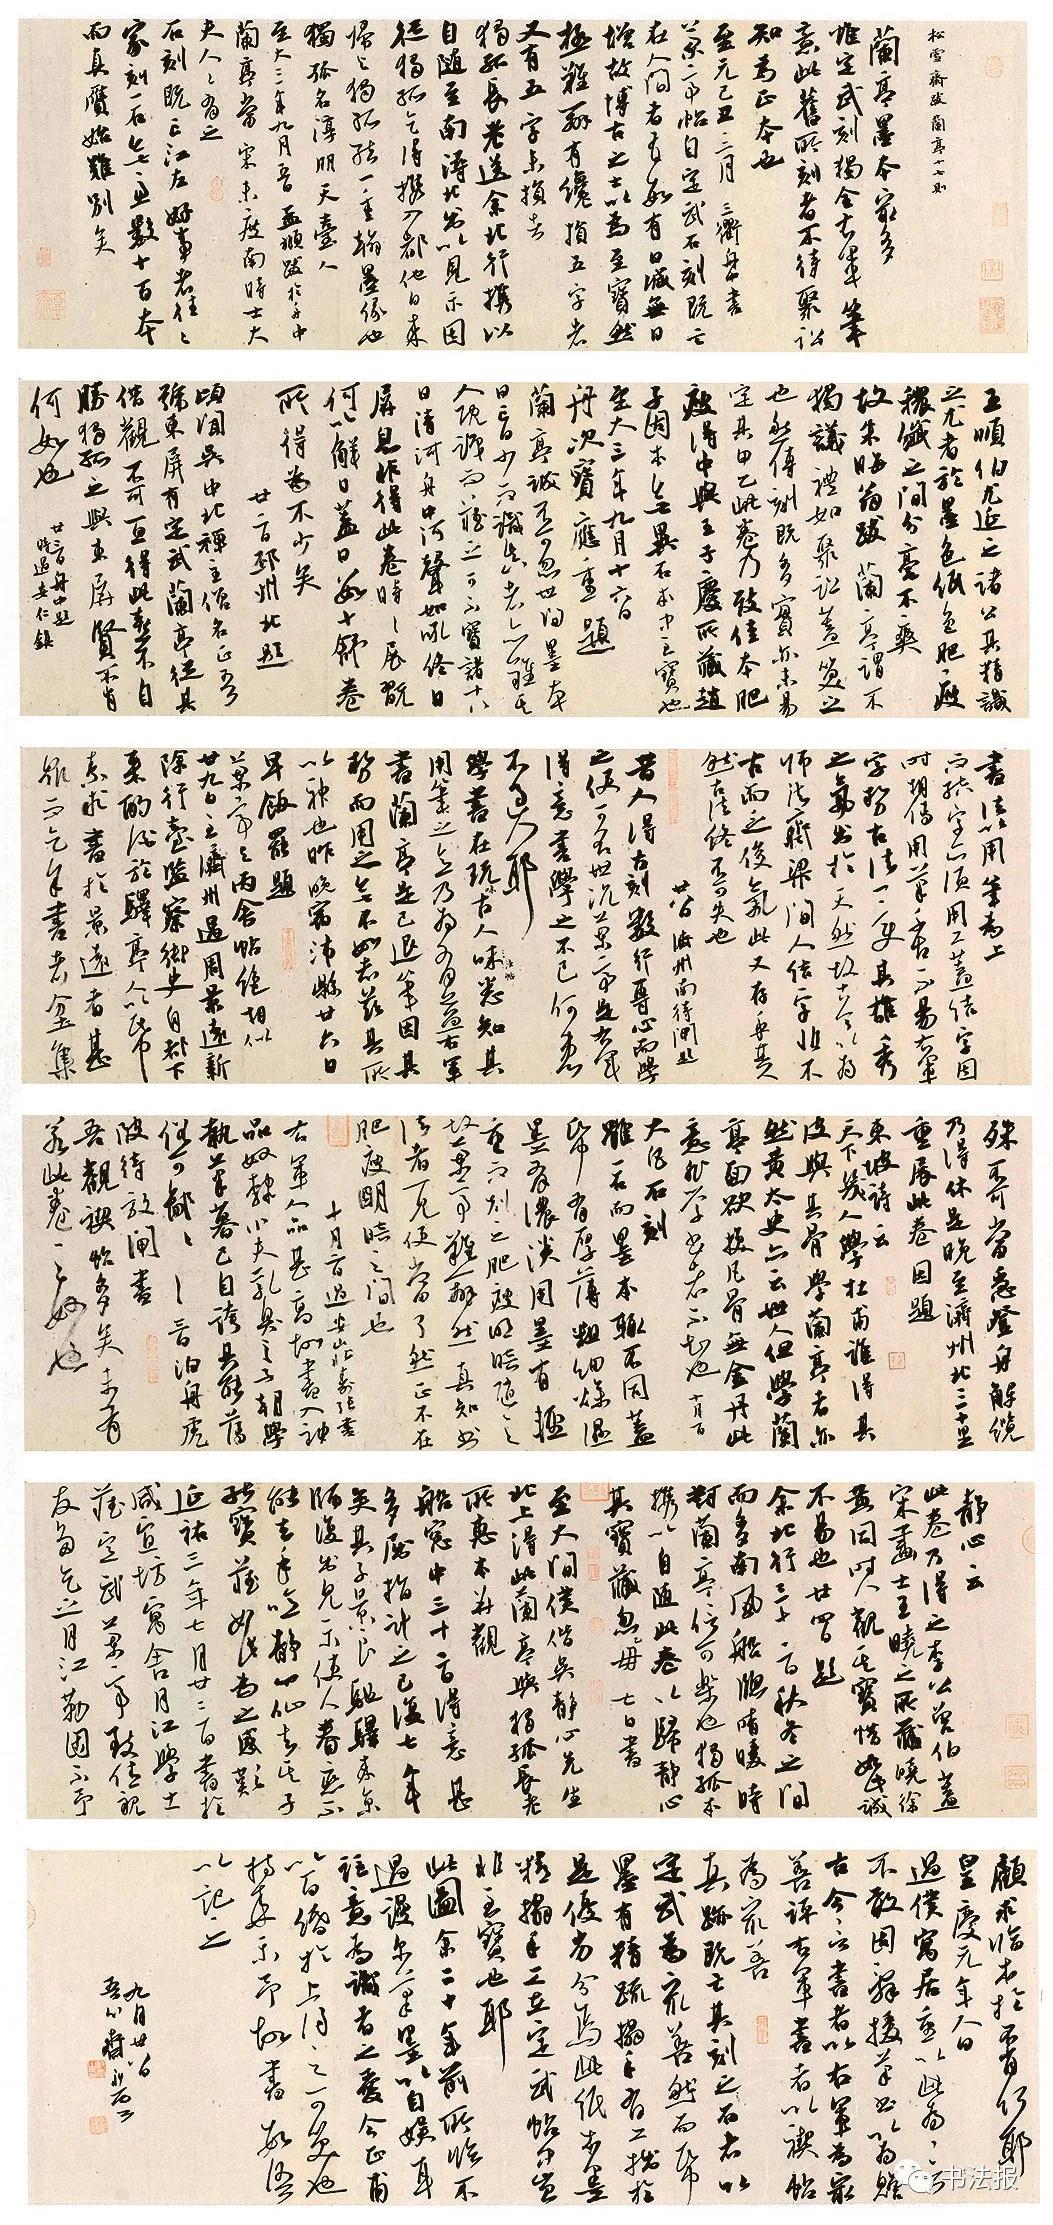 松雪齋跋蘭亭十七則
蘭亭墨本最多
惟定武刻獨全右軍筆
意此舊所刻者不待聚訟
知為正本也
至元己丑三月三衢舟中書
蘭亭帖自定武石刻既亡
在人間者有數有日減無日
增故博古之士以為至寶然
極難辨有纔損五字者
又有五字未損者
獨孤長老送余北行攜以
自隨至南潯北出以見示因
從獨孤乞得攜入都他日來
歸與獨孤結一重翰墨緣也
獨孤名淳朋天臺人
至大三年九月五日孟頫跋於舟中
蘭亭當宋未度南時士大
夫人人有之
石刻既亡江左好事者往往
家刻一石無慮數十百本
而真贗始難別矣
王順伯尤延之諸公其精識
之尤者於墨色紙色肥瘦
穠纖之間分毫不爽
故朱晦翁跋蘭亭謂不
獨議禮如聚訟蓋笑之
也然傳刻既多實亦未易
定其甲乙此卷乃致佳本肥
瘦得中與王子慶所藏趙
子固本無異石本中至寶也
至大三年九月十六日
舟次寶應重題
蘭亭誠不可忽世間墨本
日亡日少而識真者亦難其
人既識而藏之可不寶諸十八
日清河舟中河聲如吼終日
屏息非得此卷時時展翫
何以解日蓋日數十舒卷
所得為不少矣
廿二日邳州北題
頃聞吳中北禪主僧名正吾
號東屏有定武蘭亭從其
借觀不可一旦得此喜不自
勝獨孤之與東屏賢不肖
何如也
廿三日舟中題
時過安仁鎮
書法以用筆為上
而結字亦須用工蓋結字因
時相傳用筆千古不易右軍
字勢古法一變其雄秀
之氣出於天然故古今以為
師法齊梁間人結字非不
古而乏俊氣此又存乎其人
然古法終不可失也
廿八日濟州南待閘題
昔人得古刻數行專心而學
之便可名世況蘭亭是右軍
得意書學之不已何患
不過人耶
學書在玩味古人法帖悉知其
用筆之意乃為有益右軍
書蘭亭是已退筆因其
勢而用之無不如志茲其所
以神也昨晚宿沛縣廿六日
早飯罷題
蘭亭與丙舍帖絕相似
廿九日至濟州遇周景遠新
除行臺監察御史自都下
來酌酒於驛亭人以紙
素求書於景遠者甚
眾而乞余書者坌集
殊不可當急登舟解纜
乃得休是晚至濟州北三十里
重展此卷因題
東坡詩云
天下幾人學杜甫誰得其
皮與其骨學蘭亭者亦
然黃太史亦云世人但學蘭
亭面欲換凡骨無金丹此
意非學書者不知也十月一日
大凡石刻
雖一石而墨本輒不同蓋
紙有厚薄粗細燥濕
墨有濃淡用墨有輕
重而刻之肥瘦明暗隨之
故蘭亭難辨然真知書
法者一見便當了然正不在
肥瘦明暗之間也
十月二日過安山北壽張書
右軍人品甚高故書入神
品奴隸小夫乳臭之子朝學
執筆暮已自誇其能薄
俗可鄙可鄙三日泊舟虎
陂待放閘書
吾觀禊帖多矣未有
若此卷之妙也
靜心云
此卷乃得之李公曾伯蓋
宋畫士王曉之所藏曉徐
黃同時人觀其寶惜如此誠
不易也廿四日題
余北行三十二日秋冬之間
而多南風船牕晴暖時
對蘭亭信可樂也獨孤本
攜以自隨此卷以歸靜心
其寶藏忽毋七日書
至大間僕偕吳靜心先生
北上得此蘭亭與獨孤長老
所惠本並觀
船窓中三十二日得意甚
多屈指計之已復七年
矣其子景良驅驛來京
師復出見示使人眷戀不
能去手嗟靜心仙去其子
能寶藏如此為之感歎
延祐三年七月廿三日書於
咸宜坊寓舍月江學士
藏定武蘭亭致佳視
友多乞之月江勒固不予
顧求臨本於不肖何耶
皇慶元年人日
過僕寓居重以此為言
不敢固辭援筆書以為贈
古今言書者以右軍為最
善評右軍書者以禊帖
為最善
真跡既亡其刻之石者以
定武為最善然而紙
墨有精疏搨手有工拙於
是優劣分焉此紙本墨
精搨手工在定武帖中豈
非至寶也耶
此圖余二十年前所臨不
過漫爾筆墨以自娛耳
詎意為識者之愛今正甫
以百緡於上得之可笑也
持來示予故書數語
以記之
九月廿八日